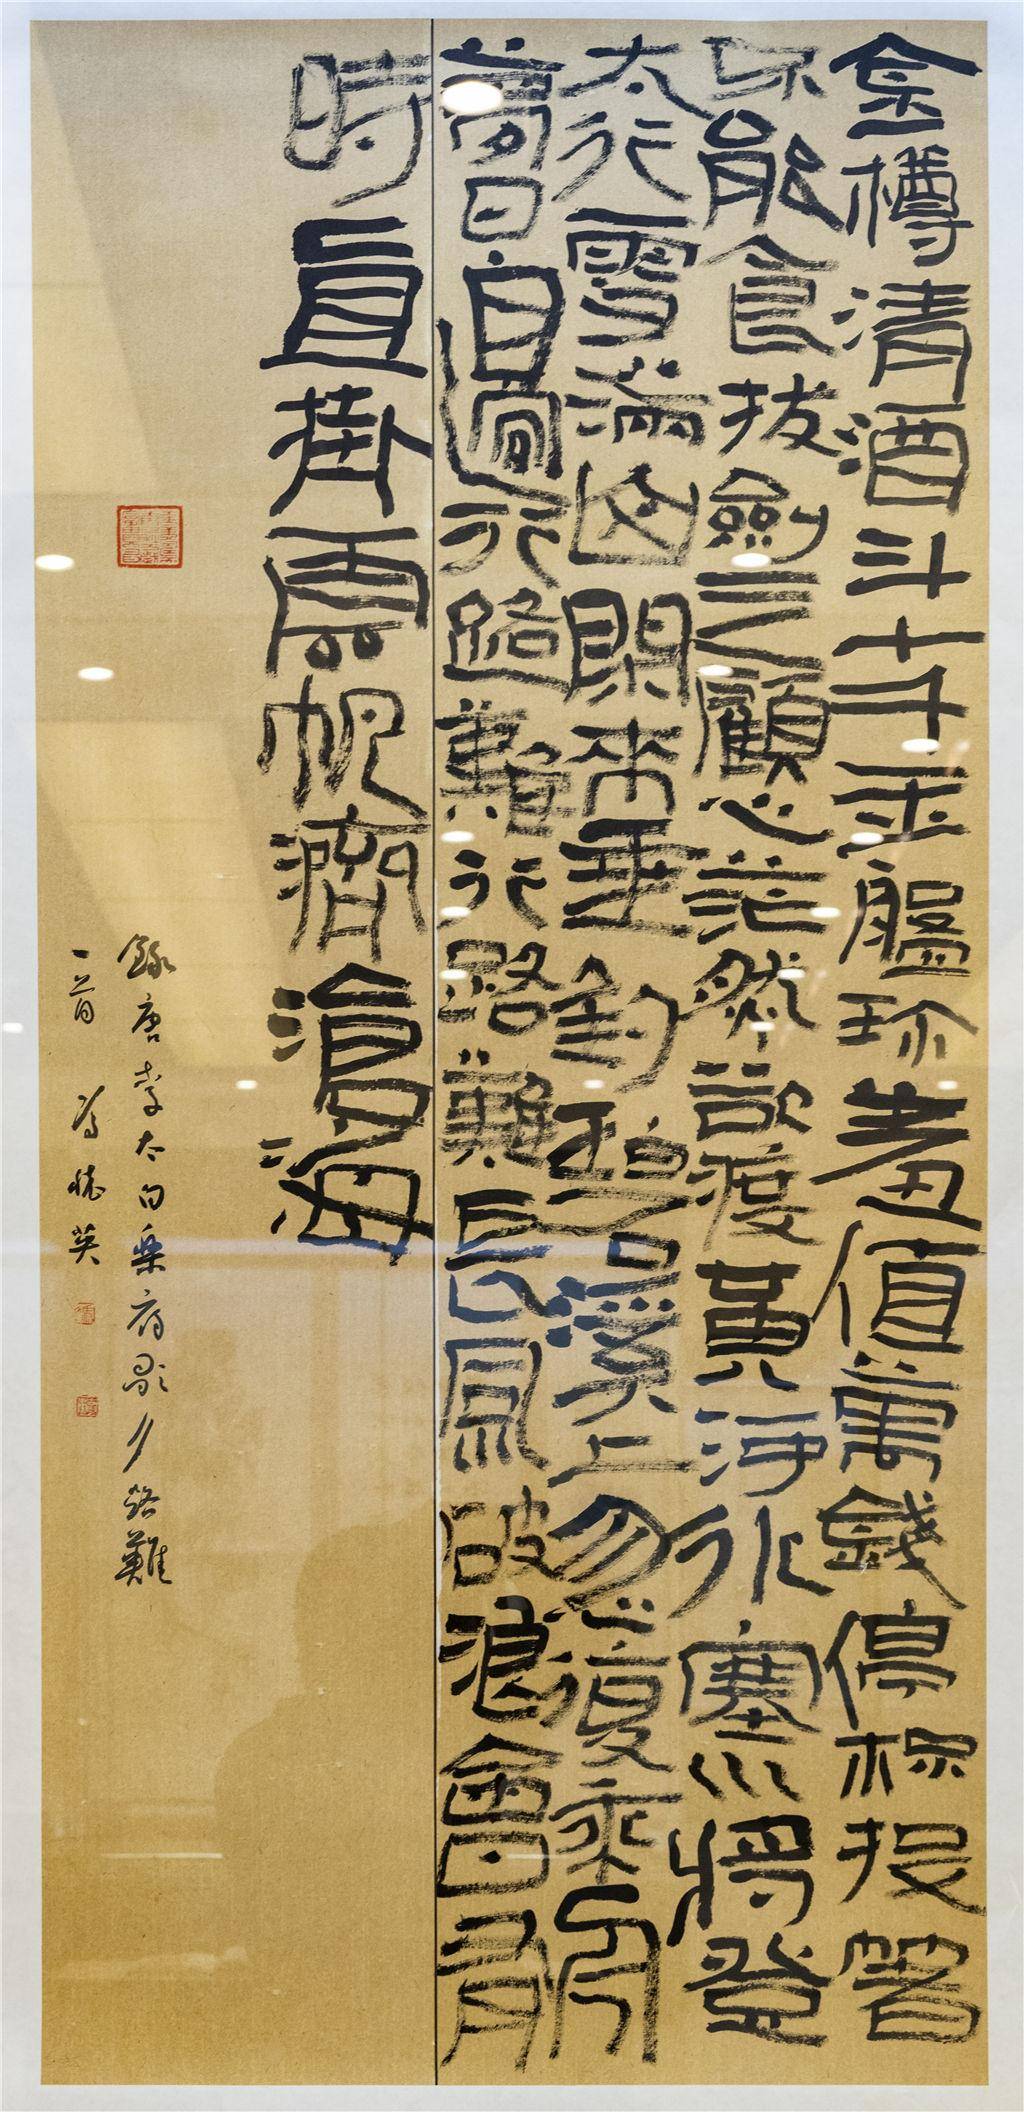 金樽清酒斗十千玉盤珍羞值萬錢停杯投箸
不能食拔劍亖顧心茫然欲渡黃河冰塞川將登
太行雪滿山閑來垂釣碧溪上忽復乘舟
夢日邊行路難行路難長風破浪會有
時直掛雲帆濟滄海
錄唐李太白樂府歌行路難
一首 馮懷英